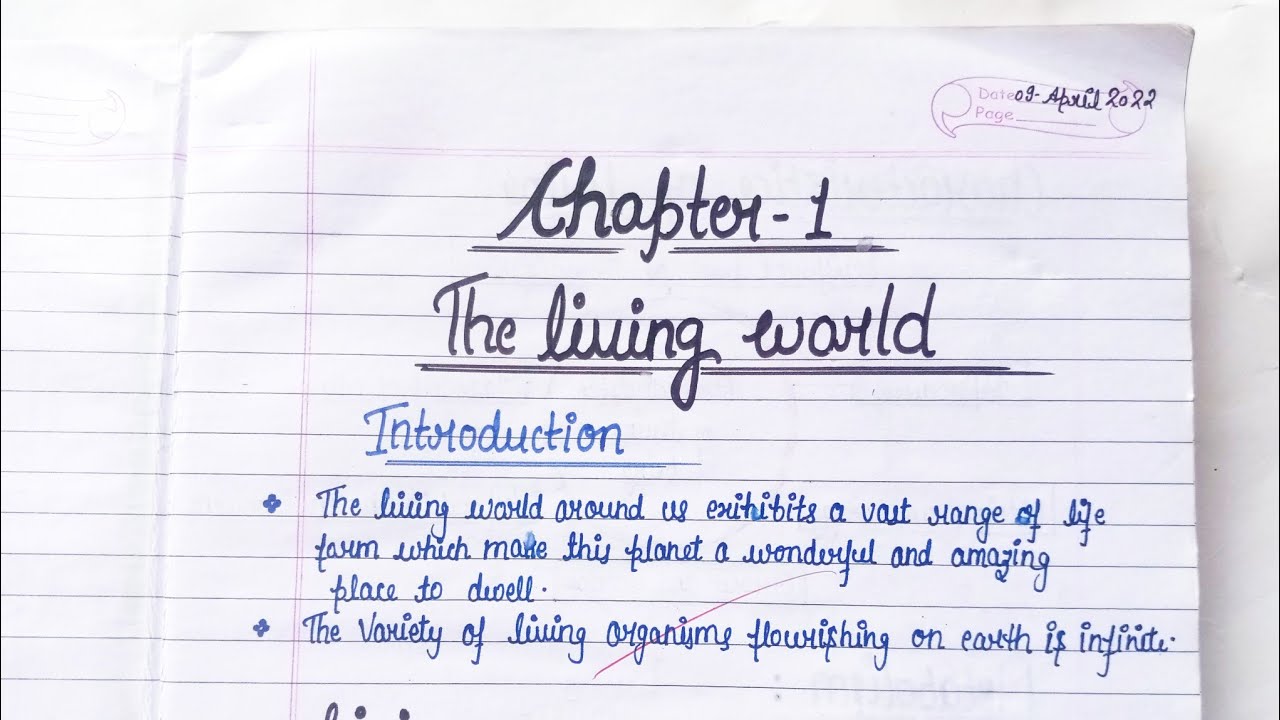 Date 09-April 2022
Page
Chapter-1
The living world
Introduction
The living world around us exihibits a vast range of life
form which make this planet a wonderful and amazing
place to dwell.
The Variety of living organisms flourishing on earth is infinite.